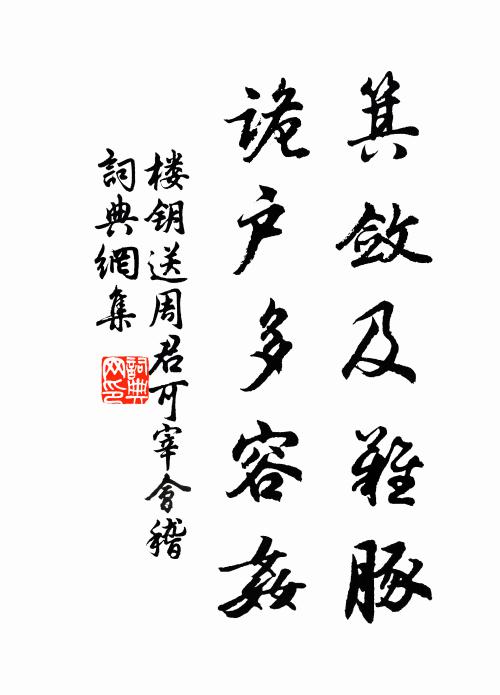 箕敛及雞豚
詭户多容姦
楼钥送周君可宰會稽
詞典網集
詞典网印